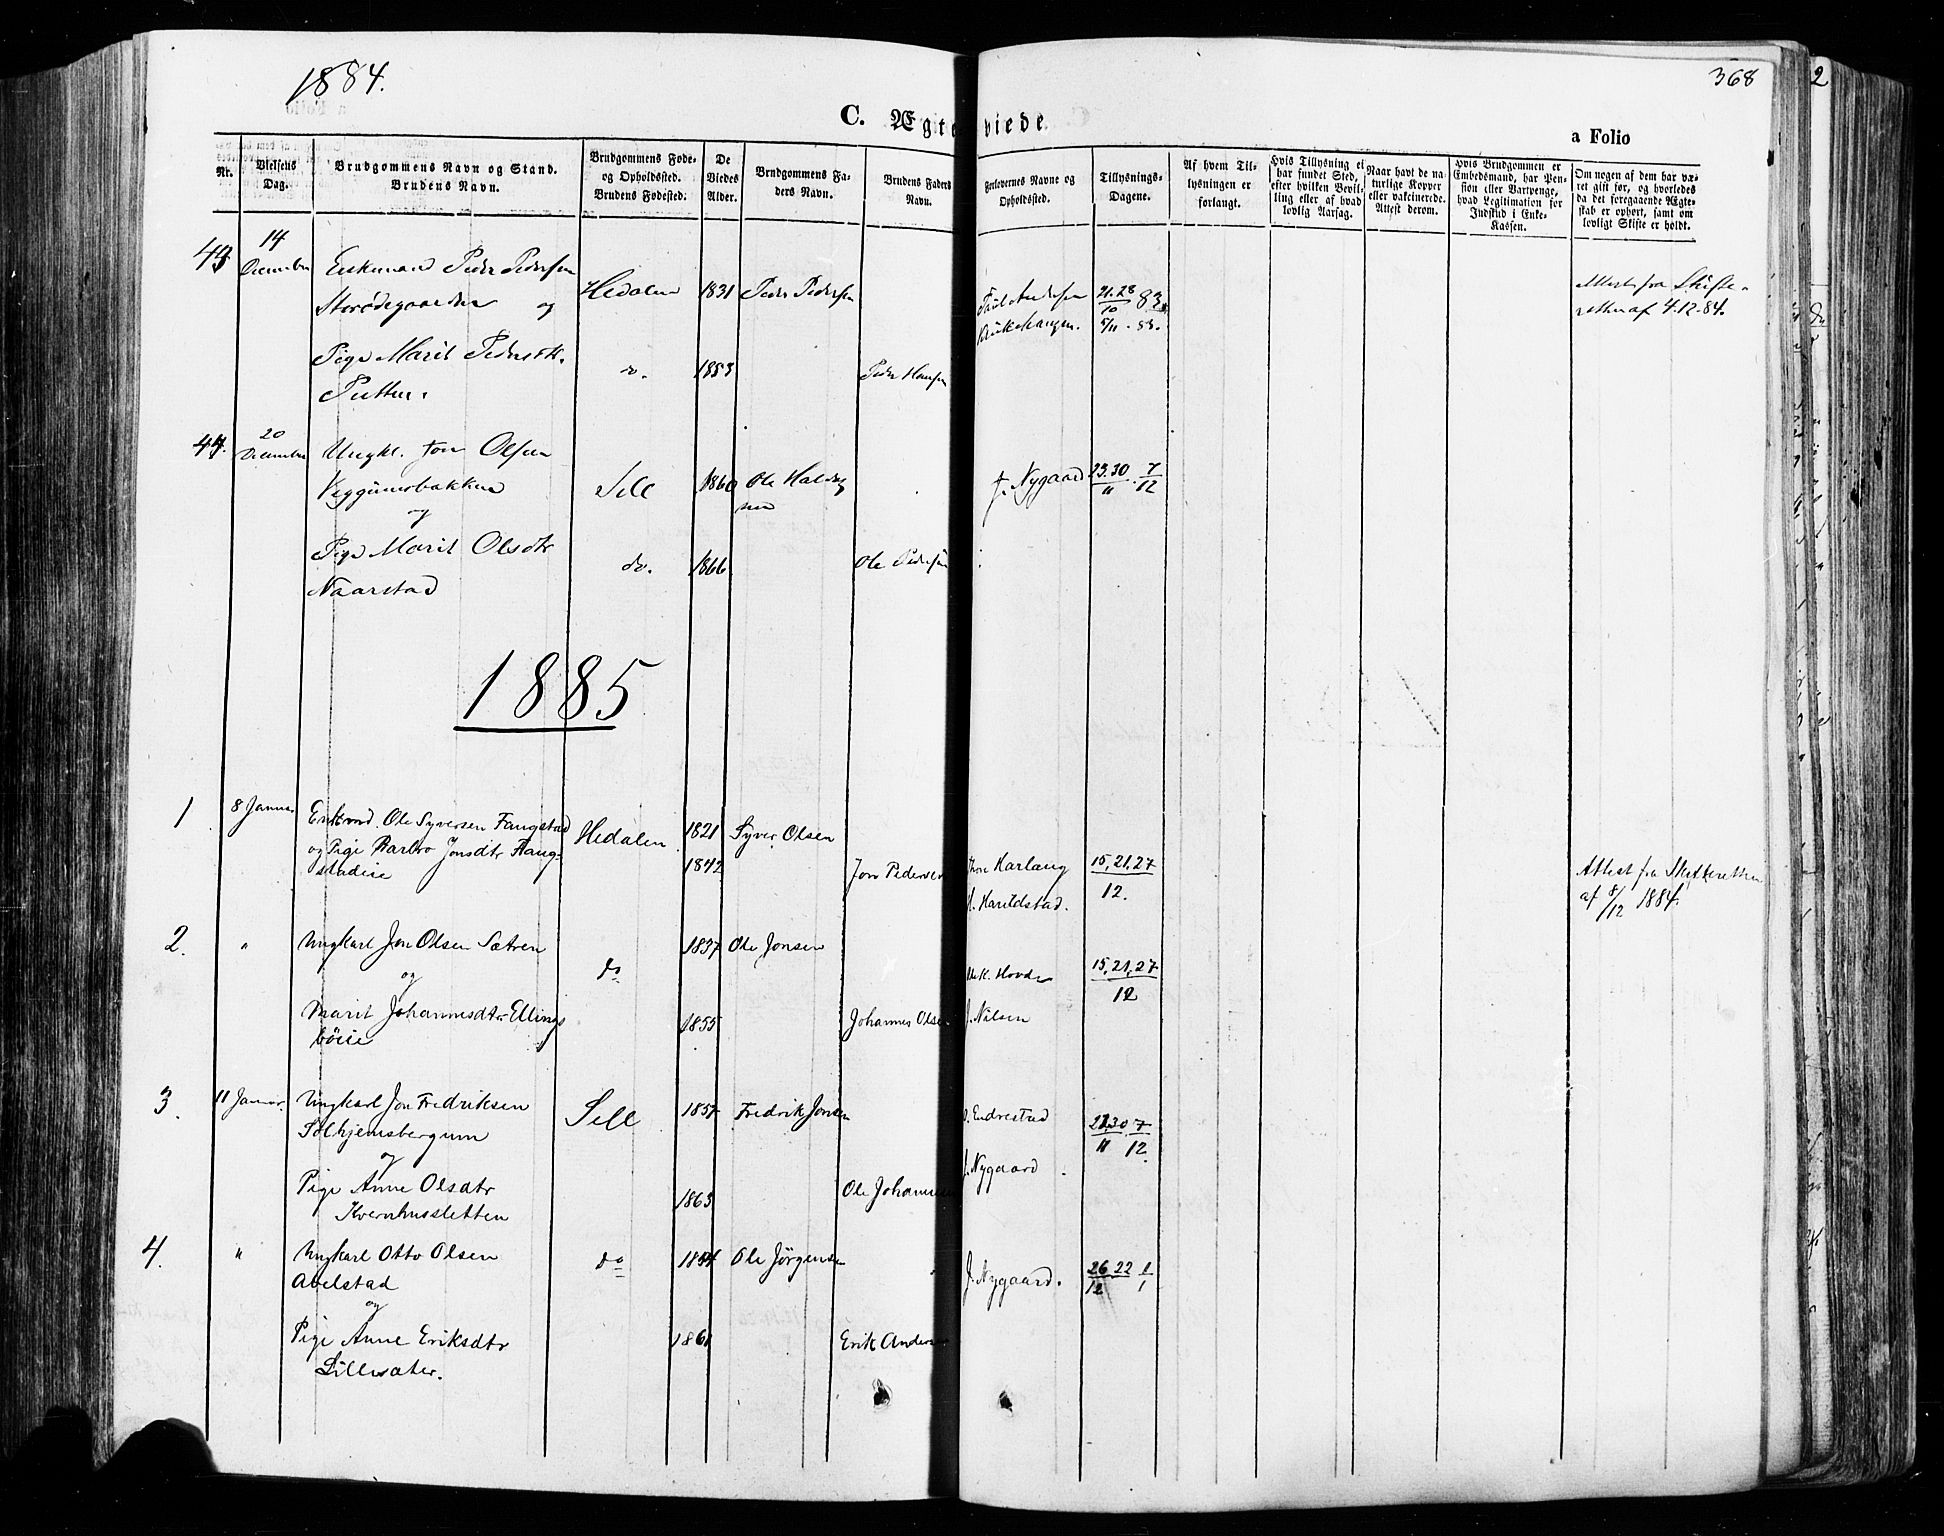 1884.
368
2
C. Ægteviede.
a Folio
Nr.
Vielsens Dag.
Brudgommens Navn og Stand.
Brudens Navn.
Brudgommens Føde-
og Opholdssted.
Brudens Fødested.
De
Viedes
Alder.
Brudgommens Fa-
ders Navn.
Brudens Faders
Navn.
Forlovernes Navne og
Opholdssted.
Tillysnings-
Dagene.
Af hvem Til-
lysningen er
forlangt.
Hvis Tillysning ei
har fundet Sted,
efter hvilken Bevil-
ling eller af hvad
lovlig Aarsag.
Naar havt de na-
turlige Kopper
eller vakcinerede.
Attest derom.
Hvis Brudgommen er
Embedsmand, har Pen-
sion eller Vartpenge,
hvad Legitimation for
Indskud i Enke-
Kassen.
Om nogen af dem har væ-
ret gift før, og hvorledes
da det foregaaende Ægte-
skab er ophørt, samt om
lovligt Skifte er holdt.
43 14 December Enkemand Peder Pedersen
Storødegaarden og Hedalen 1831 Peder Pedersen 21.28/10 83. 5/11 . 83. Attest fra Skifte-
retten af 4-12-84.
Pige Marit Pedersdtr. do. 1853 Peder Hansen
44. 20 December Ungkl. Jon Olsen
Veggumsbakken Sell 1860 Ole Halvorsen J. Nygaard 23.30/11 . 7/12
og
Pige Marit Olsdtr do. 1866 Ole Pedersen
Naarstad
1885
1 8 Januar Enkemd. Ole Syversen Fangstad Hedalen 1821 Syver Olsen
og Pige Barbro Jonsdtr Haug-
stadeie 1842 Jon Pedersen Harlaug 15, 21, 27/12. Attest fra Skifteretten
af 8/12 1884.
H. Harildstad.
2. " Ungkarl Jon Olsen Sætren do 1837 Ole Jonsen
og K. Hovde 15, 21, 27/12
Marit Johannesdtr Ellings
bøeie 1855 Johannes Olsen J. Nilsen
3. 11 Januar. Ungkarl Jon Fredriksen Sell 1857 Fredrik Jonsen Endrestad 23.30/11 7/12
Solhjemsbergum
og J. Nygaard
Pige Anne Olsdtr 1863 Ole Johannesen
Kvernhussletten
4. " Ungkarl Otto Olsen do 1854 Ole Jørgensen J. Nygaard. 26 22/12 1/1
Avelstad
og
Pige Anne Eriksdtr 1861 Erik Andersen
Lillesæter.